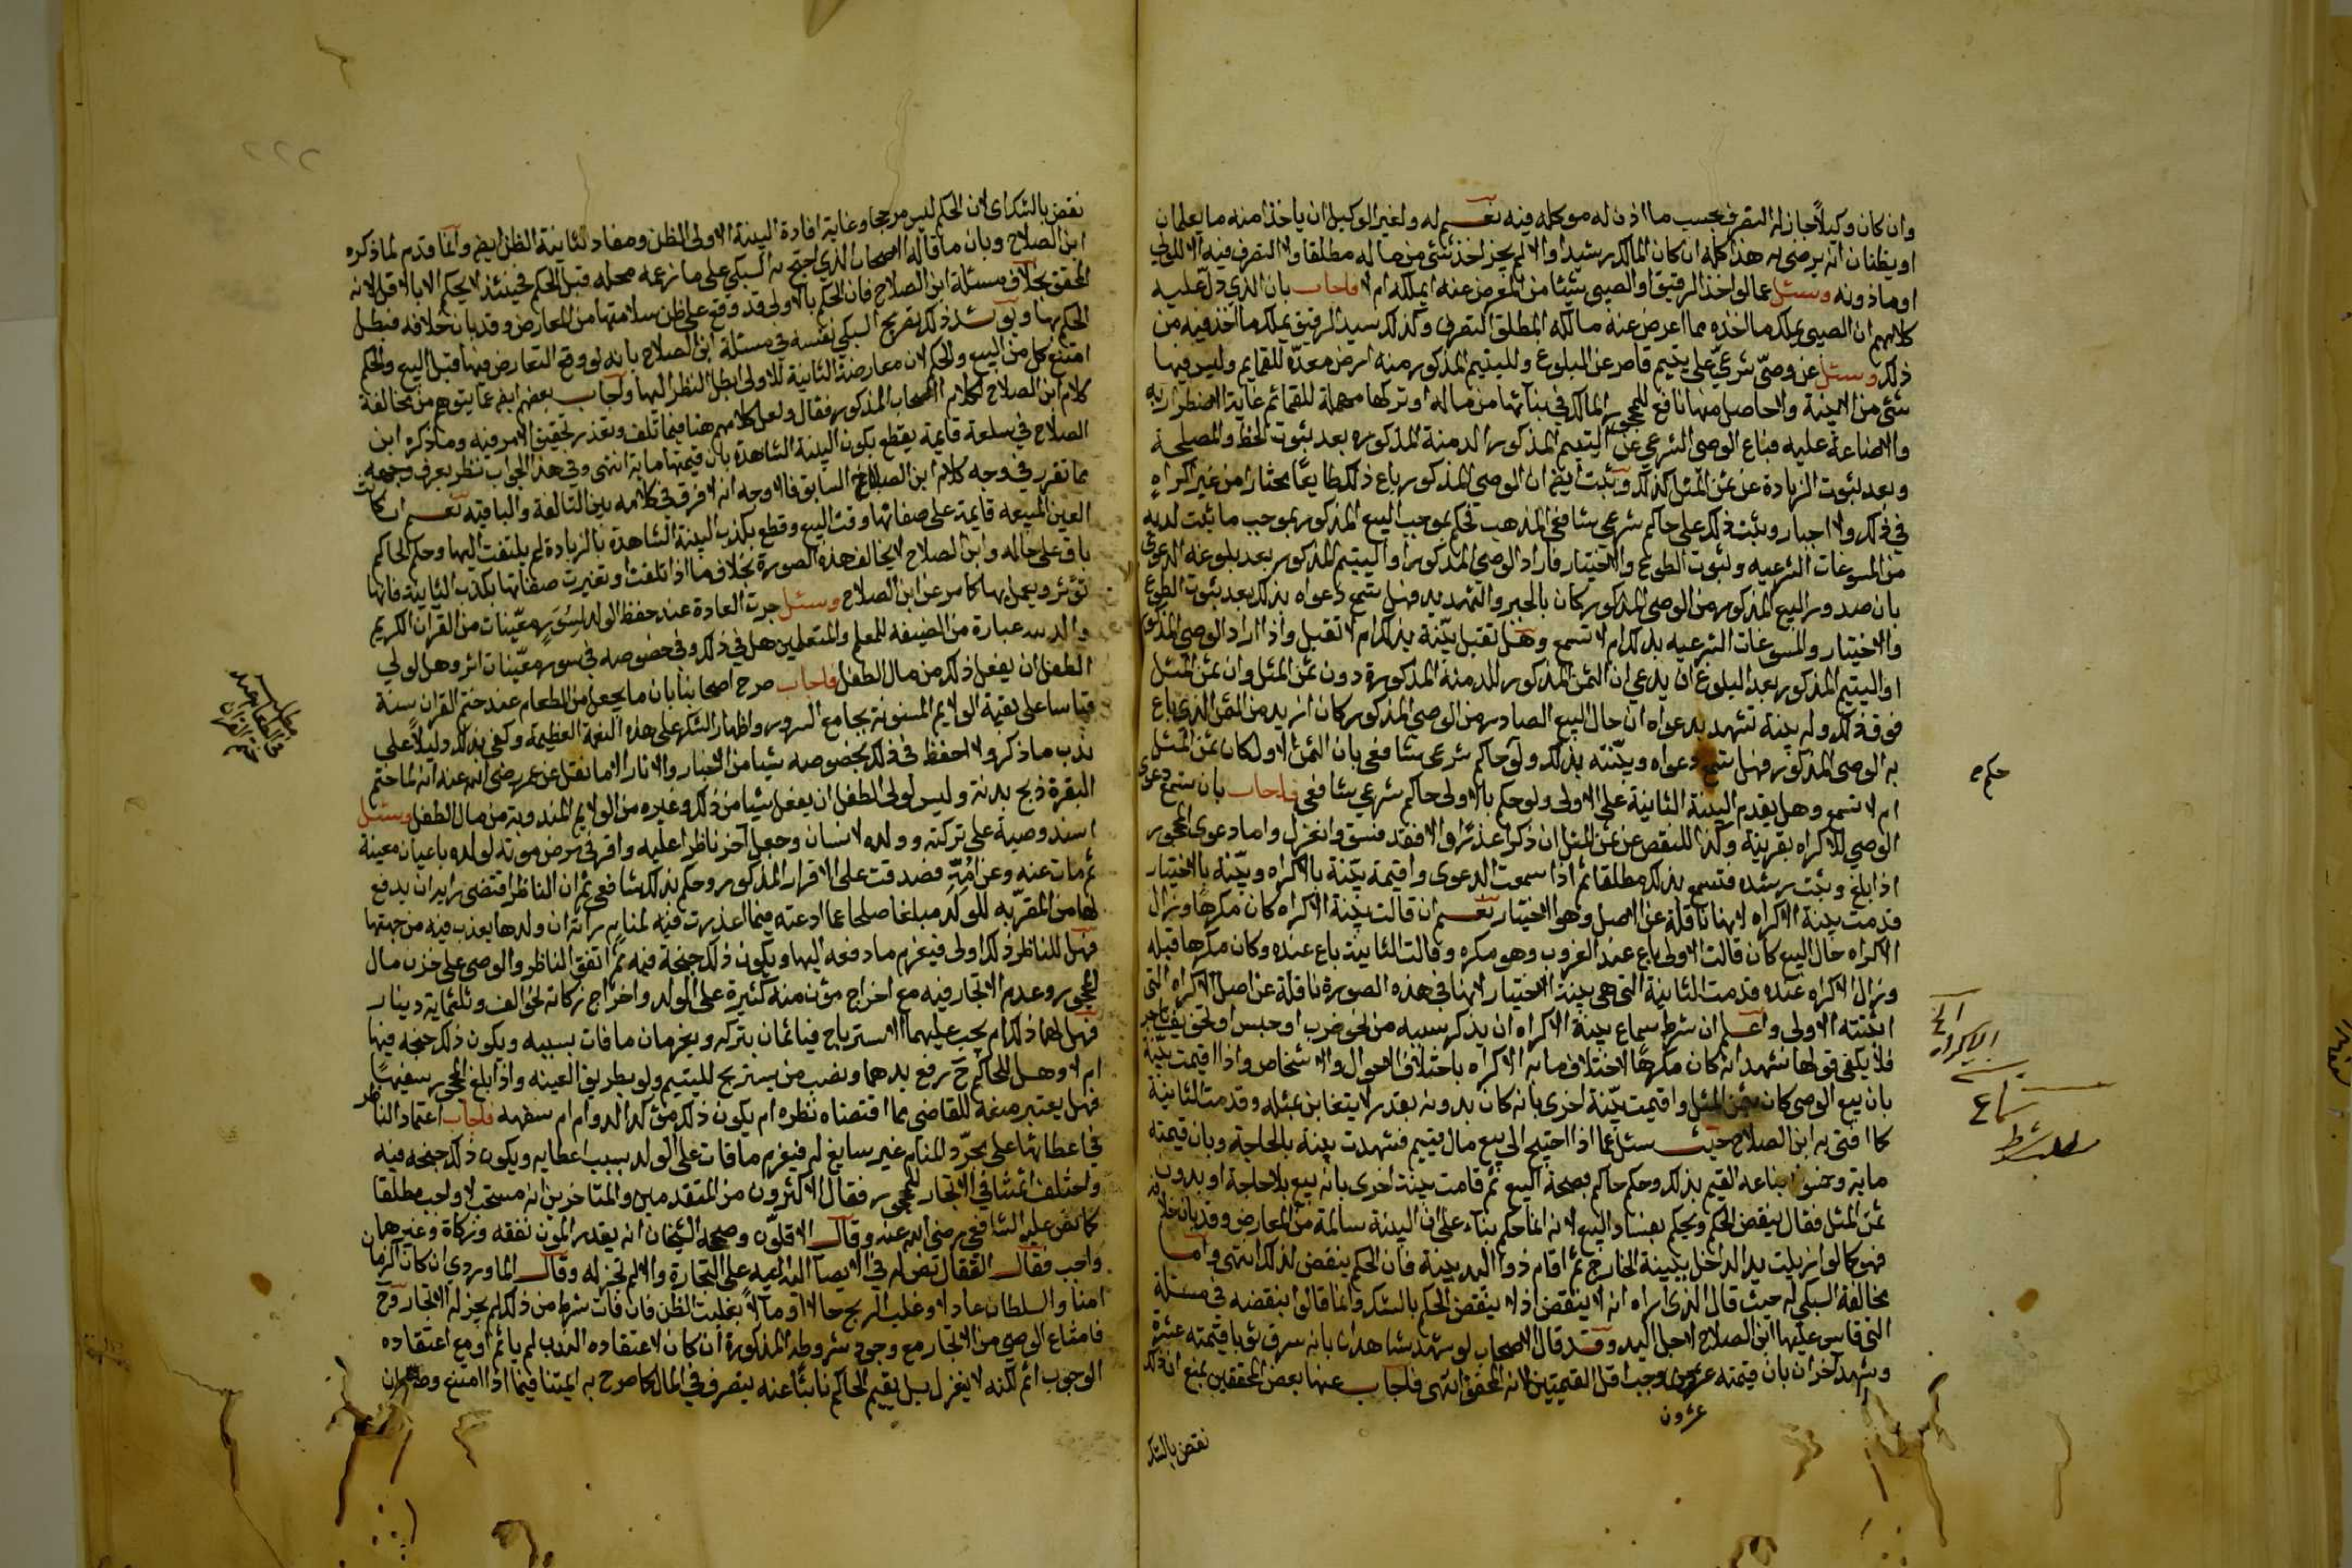 وان كان وكيلاً جاز له التصرف بحسب ما اذن له موكله فيه نعم له ولغير الوكيل ان ياخذ منه ما يعلمان
او يظنان انه يرضى به هذا كله ان كان المالك رشيدا والا لم يجز اخذ شئ من ماله مطلقا ولا التصرف فيه الا للولي
او ماذونه وسئل عما لو اخذ الرقيق او الصبي شيئا من المعرض عنه ايملكه ام لا فاجاب بان الذي دل عليه
كلامهم ان الصبي يملك ما اخذه مما اعرض عنه مالكه المطلق التصرف وكذلك سيد الرقيق يملك ما اخذ فيه من
ذلك وسئل عن وصي شرعي على يتيم قاصر عن البلوغ ولليتيم المذكور منه ارض معدة للقمايم وليس فيها
شئ من الابنية ولا حاصل منها نافع للمحجور المالك في بنائها من ماله او تركها مهملة للقمائم غاية الاضطرار به
والاضاعة عليه فباع الوصي الشرعي عن اليتيم المذكور الدمنة المذكورة بعد ثبوت الحظ والمصلحة
وبعد ثبوت الزيادة عن ثمن المثل كذلك وثبت ايضا ان الوصي المذكور باع ذلك طايعا مختارا من غير اكراه
في ذلك ولا اجبار وثبت ذلك على حاكم شرعي شافعي المذهب فحكم بموجب البيع المذكور بموجب ما ثبت لديه
من المسوغات الشرعيه وثبوت الطوع والاختيار فاراد الوصي المذكور او اليتيم المذكور بعد بلوغه الدعوى
بان صدور البيع المذكور من الوصي المذكور كان بالجبر والتهديد فهل تسمع دعواه بذلك بعد ثبوت الطوع
والاختيار والمسوغات الشرعيه بذلك ام لا تسمع وهل تقبل بينة بذلك ام لا تقبل واذا اراد الوصي المذكور
او اليتيم المذكور بعد البلوغ ان يدعي ان الثمن المذكور للدمنة المذكورة دون ثمن المثل وان ثمن المثل
فوق ذلك وله بينة تشهد بدعواه ان حال البيع الصادر من الوصي المذكور كان ازيد من الثمن الذي باع
به الوصي المذكور فهل تسمع دعواه وبينته بذلك ولو حاكم شرعي شافعي بان الثمن الاول كان ثمن المثل
ام لا تسمع وهل يقدم البينة الثانية على الاولى ولو حكم بالاولى حاكم شرعي شافعي فاجاب بان تسمع دعوى
الوصي للاكراه بقرينة وكذا للنقص عن ثمن المثل ان ذكر عذرا والا فقد فسق وانعزل واما دعوى المحجور
اذا بلغ وثبت رشده فتسمع بذلك مطلقا ثم اذا سمعت الدعوى واقيمة بينة بالاكراه وبينة بالاختيار
قدمت بينة الاكراه لانها ناقلة عن الاصل وهو الاختيار نعم ان قالت بينة الاكراه كان مكرها وزال
الاكراه حال البيع كان قالت الاولى باع عند الغروب وهو مكره وقالت الثانية باع عنده وكان مكرها قبله
وزال الاكراه عنده قدمت الثانية التي هي بينة الاختيار لانها في هذه الصورة ناقلة عن اصل الاكراه التي
اثبتته الاولى واعلم ان شرط سماع بينة الاكراه ان يذكر سببه من نحو ضرب او حبس او تخويف ناجز
فلا يكفي قولها نشهد انه كان مكرها لاختلاف ما به الاكراه باختلاف الاحوال والاشخاص واذا اقيمت بينة
بان بيع الوصي كان بثمن المثل واقيمت بينة اخرى بانه كان بدونه بقدر لا يتغابن بمثله وقدمت الثانية
كما افتى به ابن الصلاح حيث سئل عما اذا احتيج الى بيع مال يتيم فشهدت بينة بالحاجة وبان قيمته
ماية وخمسون فباعه القيم بذلك وحكم حاكم بصحة البيع ثم قامت بينة اخرى بانه بيع بلا حاجة او بدون
ثمن المثل فقال ينقض الحكم ويحكم بفساد البيع لانه انما حكم بناء على ان البينة سالمة من المعارض وقد بان خلافه
فهو كما لو ازيلت يد الداخل ببينة الخارج ثم اقام ذو اليد بينة فان الحكم ينقض لذلك انتهى واما
مخالفة السبكي له حيث قال الذي اراه انه لا ينقض اذ لا ينقض الحكم بالشك وانما قالوا بنقضه في مسئلة
التي قاس عليها ابن الصلاح لاجل اليد وقد قال الاصحاب لو شهد شاهدان بانه سرق ثوبا قيمته عشرة
وشهد آخران بان قيمته عشرون وجب اقل القيمتين لانه المحقق انتهى فاجاب عنها بعض المحققين بمنع ان ذلك
عشرون
نقض بالشك
حكم ص
الاكراه
سماع
مطلب شرط
٢٢٢
نقض بالشك اي لان الحكم ليس مرجحا وغاية افادة البينة الاولى الظن ومفاد الثانية الظن ايضا وانما قدم لما ذكره
ابن الصلاح وبان ما قاله الاصحاب الذي احتج به السبكي على ما زعمه محله قبل الحكم فحينئذ لا يحكم الا بالاقل لانه
المحقق بخلاف مسئلة ابن الصلاح فان الحكم بالاولى قد وقع على ظن سلامتها من المعارض وقد بان خلافه فبطل
الحكم بها ويؤيد ذلك تصريح السبكي نفسه في مسئلة ابن الصلاح بانه لو وقع التعارض فيها قبل البيع والحكم
امتنع كل من البيع والحكم لان معارضة الثانية للاولى ابطل النظر اليها واجاب بعضهم ايضا عما يتوهم من مخالفة
كلام ابن الصلاح لكلام الاصحاب المذكور فقال ولعل كلامهم هنا فيما تلف وتعذر تحقيق الامر فيه وما ذكره ابن
الصلاح في سلعة قايمة يقطع بكون البينة الشاهدة بان قيمتها ماية انتهى وفي هذا الجواب نظر يعرف وجهه
مما تقرر في وجه كلام ابن الصلاح السابق فالاوجه انه لا فرق في كلامه بين التالفة والباقيه نعم ان كانت
العين المبيعه قايمة على صفاتها وقت البيع وقطع بكذب البينة الشاهدة بالزيادة لم يلتفت اليها وحكم الحاكم
باق على حاله وابن الصلاح لا يخالف هذه الصورة بخلاف ما اذا تلفت او تغيرت صفاتها بكذب الثانية فانها
تؤثر ويعمل بها كما مر عن ابن الصلاح وسئل جرت العادة عند حفظ الولد لسور معينات من القران الكريم
عبارة من الضيفه للمعلم والمتعلمين هل في ذلك وفي خصوصه في سور معينات اثر وهل لولي
الطفل ان يفعل ذلك من مال الطفل فاجاب صرح اصحابنا بان ما يجعل من الطعام عند ختم القران سنة
قياسا على بقية الولايم المسنونة بجامع السرور واظهار الشكر على هذه النعمة العظيمة وكفى بذلك دليلا على
ندب ما ذكر ولا احفظ في ذلك بخصوصه شيئا من الاخبار والاثار الا ما نقل عن عمر رضي الله عنه انه لما ختم
البقرة ذبح بدنة وليس لولي الطفل ان يفعل شيئا من ذلك وغيره من الولايم المندوبة من مال الطفل وسئل
اسند وصية على تركته وولده لانسان وجعل آخر ناظرا عليه واقر في مرض موته لولده باعيان معينة
ثم مات عنه وعن امه فصدقت على الاقرار المذكور وحكم بذلك شافعي ثم ان الناظر اقتضى رايه ان يدفع
لها من المقر به للولد مبلغا صلحا عما ادعته فيما اعذرت فيه لمنام راته ان ولدها يعذب فيه من جهتها
فهل للناظر ذلك او لا فيغرم ما دفعه اليها ويكون ذلك جنحة فيه ثم اتفق الناظر والوصي على خزن مال
المحجور وعدم الاتجار فيه مع اخراج مؤن منه كثيرة على الولد واخراج زكاته نحو الف وثلثماية دينار
فهل لهما ذلك ام يجب عليهما الاسترباح فياثمان بتركه ويغرمان ما فات بسببه ويكون ذلك جنحه فيها
ام لا وهل للحاكم رفع يدهما ونصب من يستربح لليتيم ولو بطريق العينه واذا بلغ المحجور سفيها
فهل يعتبر منعه للقاضي بما اقتضاه نظره ام يكون ذلك مؤكدا لدوام سفهه فاجاب اعتماد الناظر
في اعطائها على مجرد المنام غير سايغ له فيغرم ما فات على الولد بسبب اعطايه ويكون ذلك جنحه فيه
واختلف ائمتنا في الاتجار للمحجور فقال الاكثرون من المتقدمين والمتاخرين انه مستحب لا واجب مطلقا
كما نص عليه الشافعي رضي الله عنه وقال الاقلون وصححه الشيخان انه بقدر المؤن نفقه وزكاة وغيرهما
واجب فقال القفال نص له في الايصاء على التجارة والا لم تجز له وقال الماوردي ان كان الزمان
امنا والسلطان عادلا وغلب الربح حالا او مآلا بغلبت الظن فان فات شرط من ذلك لم يجز له الاتجار وح
فامتناع الوصي من الاتجار مع وجود شروطه المذكورة ان كان لاعتقاده الندب لم ياثم او مع اعتقاده
الوجوب اثم لكنه لا ينعزل بل يقيم الحاكم نائبا عنه يتصرف في المال كما صرح به ايمتنا فيما اذا امتنع